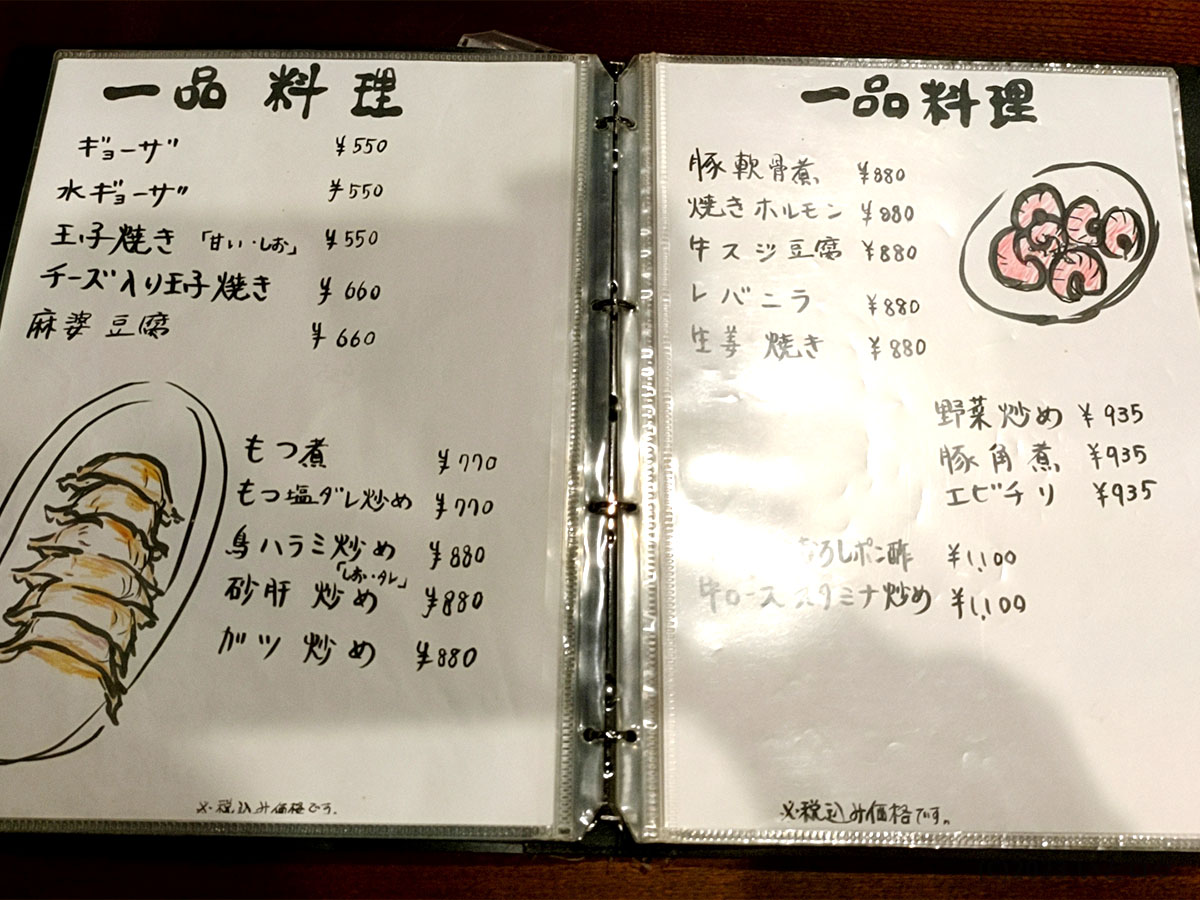 一品料理
ギョーザ ¥550
水ギョーザ ¥550
玉子焼き 「甘い・しお」 ¥550
チーズ入り玉子焼き ¥660
麻婆豆腐 ¥660
もつ煮 ¥770
もつ塩ダレ炒め ¥770
鳥ハラミ炒め ¥880
「しお・タレ」
砂肝炒め ¥880
ガツ炒め ¥880
※税込み価格です。
一品料理
豚軟骨煮 ¥880
焼きホルモン ¥880
牛スジ豆腐 ¥880
レバニラ ¥880
生姜焼き ¥880
野菜炒め ¥935
豚角煮 ¥935
エビチリ ¥935
おろしポン酢 ¥1,100
牛ローススタミナ炒め ¥1,100
※税込み価格です。